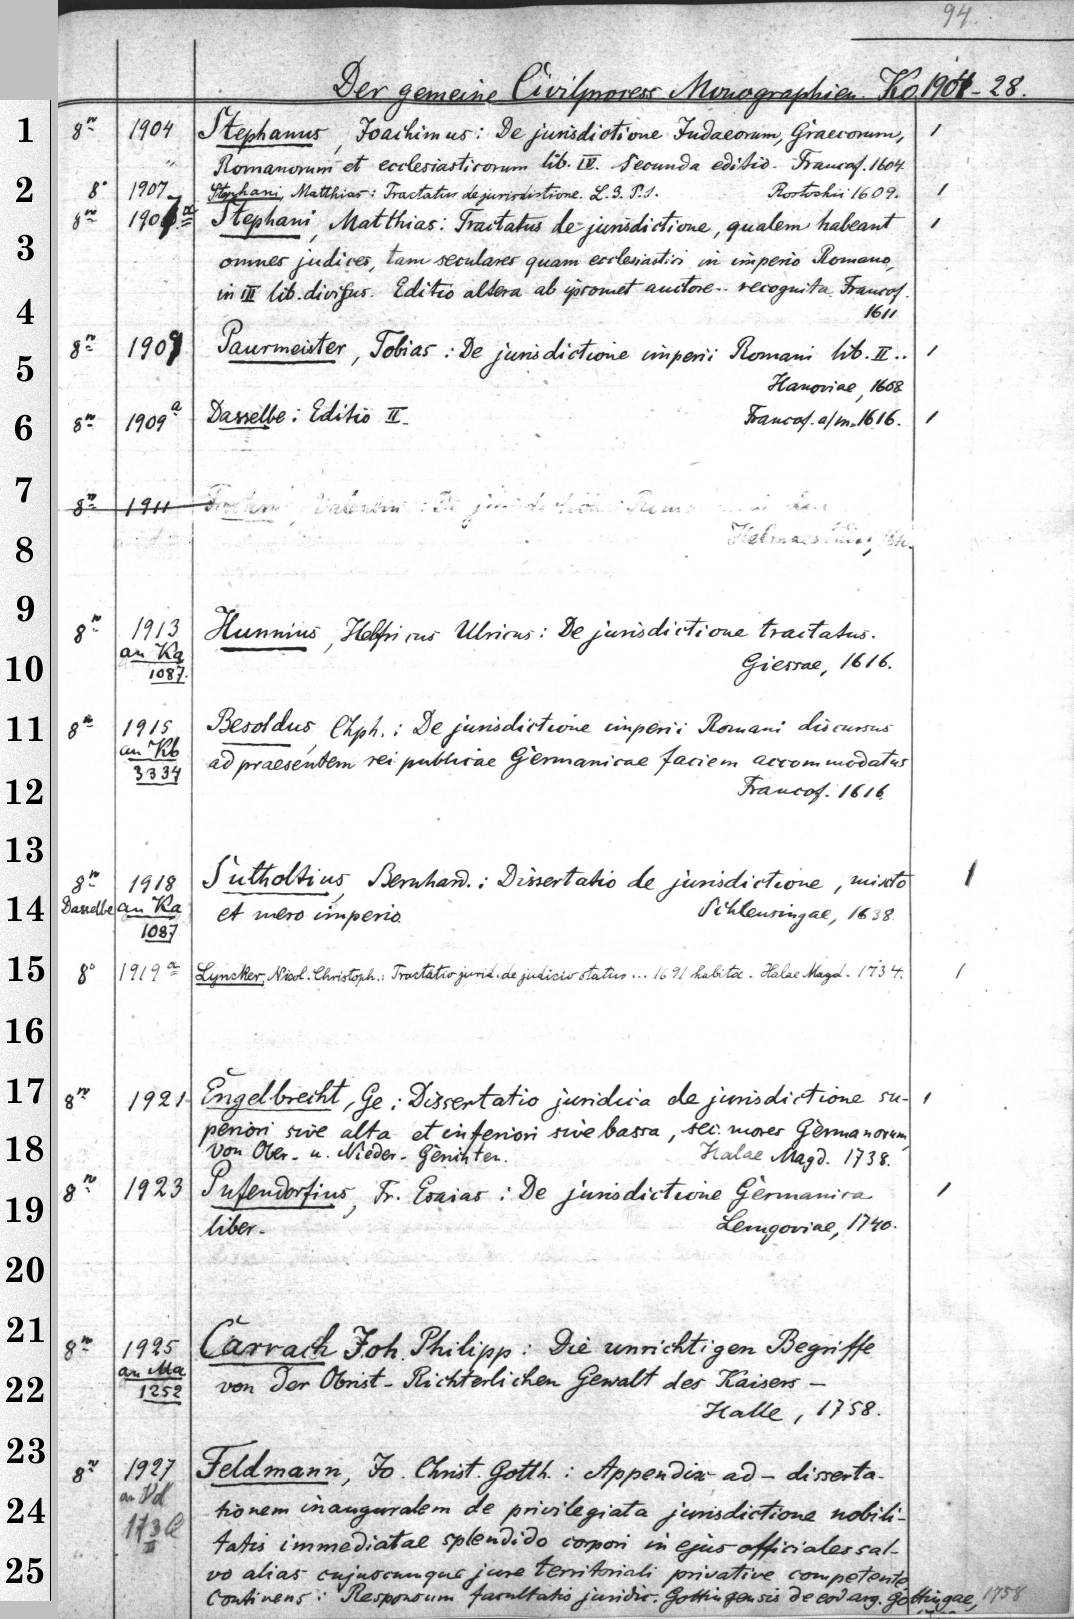 94.
Der gemeine Civilprocess Monographien. Ko 1904-28.
1 8º 1904 Stephanus, Joachimus: De jurisdictione Judaeorum, Graecorum, 1
" Romanorum et ecclesiasticorum lib. IV. Secunda editio. Francof. 1604.
2 8º 1907 Stephani, Matthias: Tractatus de jurisdictione. L. 3. P. 1. Rostochii 1609. 1
8º 1907 a Stephani, Matthias: Tractatus de jurisdictione, qualem habeant 1
3 omnes judices, tam seculares quam ecclesiastici in imperio Romano,
in III lib. divisus. Editio altera ab ipsomet auctore.. recognita. Francof.
4 1611
8º 1909 Paurmeister, Tobias: De jurisdictione imperii Romani lib. II.. 1
5 Hanoviae, 1608
6 8º 1909 a Dasselbe: Editio II. Francof. a/m. 1616. 1
7 8º 1911 De
8
9 8º 1913 Hunnius, Helfricus Ulricus: De jurisdictione tractatus.
10 an Ka 1087. Giessae, 1616.
11 8º 1915 Besoldus, Chph.: De jurisdictione imperii Romani discursus
an Kb 3334 ad praesentem rei publicae Germanicae faciem accommodatus
12 Francof. 1616.
13
8º 1918 Sutholtius, Bernhard.: Dissertatio de jurisdictione, mixto 1
14 Dasselbe an Ka 1087 et mero imperio. Schleusingae, 1638.
15 8º 1919 a Lyncker, Nicol. Christoph.: Tractatio jurid. de judicio status... 1691 habita. Halae Magd. 1734. 1
16
17 8º 1921 Engelbrecht, Ge: Dissertatio juridica de jurisdictione su- 1
periori sive alta et inferiori sive bassa, sec. mores Germanorum,
18 Von Ober- u. Nieder-Gerichten. Halae Magd. 1738.
8º 1923 Pufendorfius, Fr. Esaias: De jurisdictione Germanica 1
19 liber. Lemgoviae, 1740.
20
21 8º 1925 Carrach Joh. Philipp: Die unrichtigen Begriffe
22 an Ma 1252 von der Obrist-Richterlichen Gewalt des Kaisers –
Halle, 1758.
23 8º 1927 Feldmann, Jo. Christ. Gotth.: Appendix ad – disserta-
24 an Vd tionem inauguralem de privilegiata jurisdictione nobili-
tatis immediatae splendido corpori in ejus officiales sal-
25 vo alias cujuscunque jure territoriali privative competente
continens: Responsum facultatis juridic. Gottingensis de eod arg. Göttingae, 1758